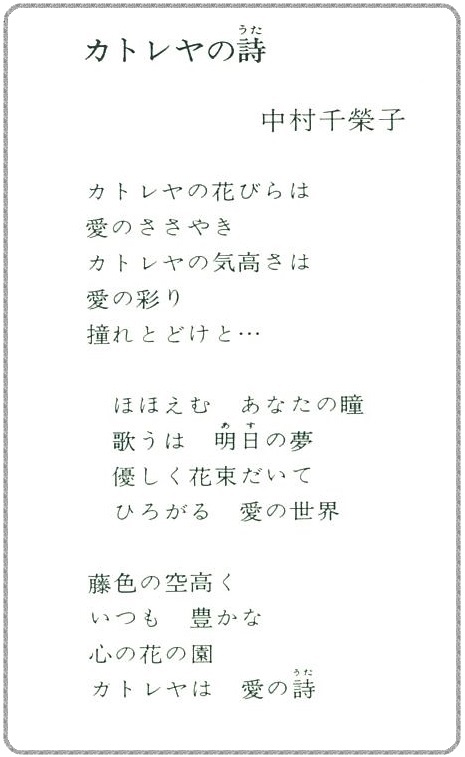 カトレヤの詩
うた
中村千榮子
カトレヤの花びらは
愛のささやき
カトレヤの気高さは
愛の彩り
撞れとどけと…
ほほえむ　あなたの瞳
歌うは　明日の夢
あす
優しく花束だいて
ひろがる　愛の世界
藤色の空高く
いつも　豊かな
心の花の園
カトレヤは　愛の詩
うた